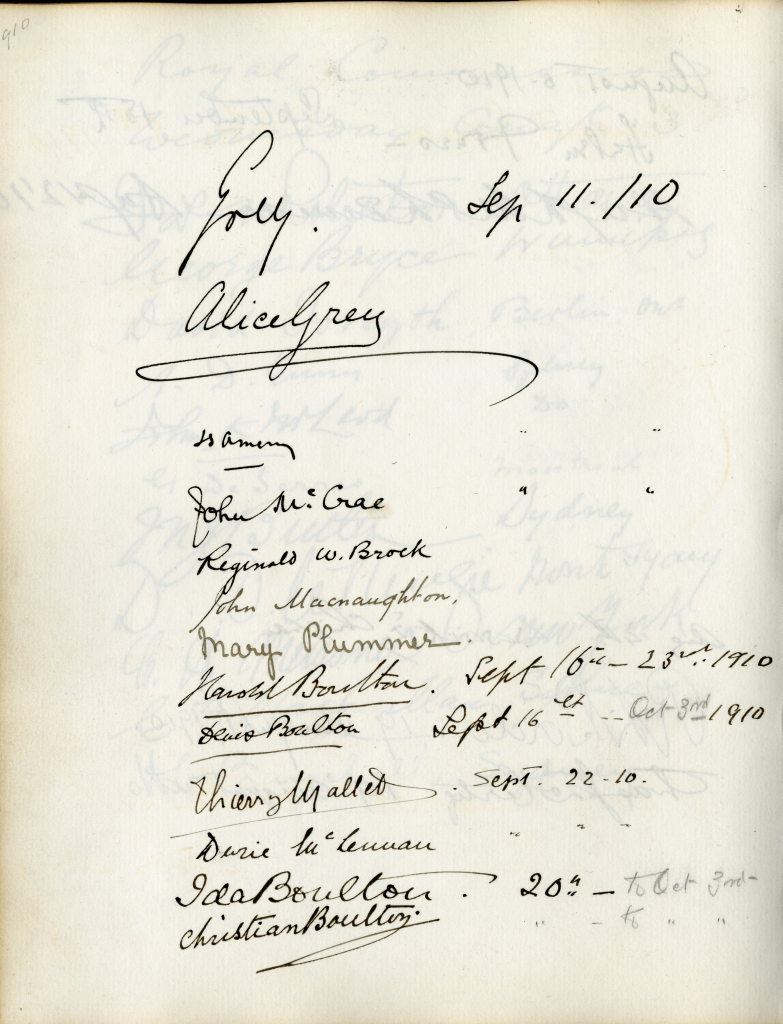 910
Grey. Sep 11./10
Alice Grey
" "
John McCrae " "
Reginald W. Brock
John Macnaughton.
Mary Plummer.
Harold Boulton. Sept 16th – 23rd. 1910
Denis Boulton Sept 16th -- Oct 3rd 1910
Thierry Mallet. Sept. 22-10.
Durie McLennan " " "
Ida Boulton. 20th – to Oct 3rd-
Christian Boulton. " – to " "